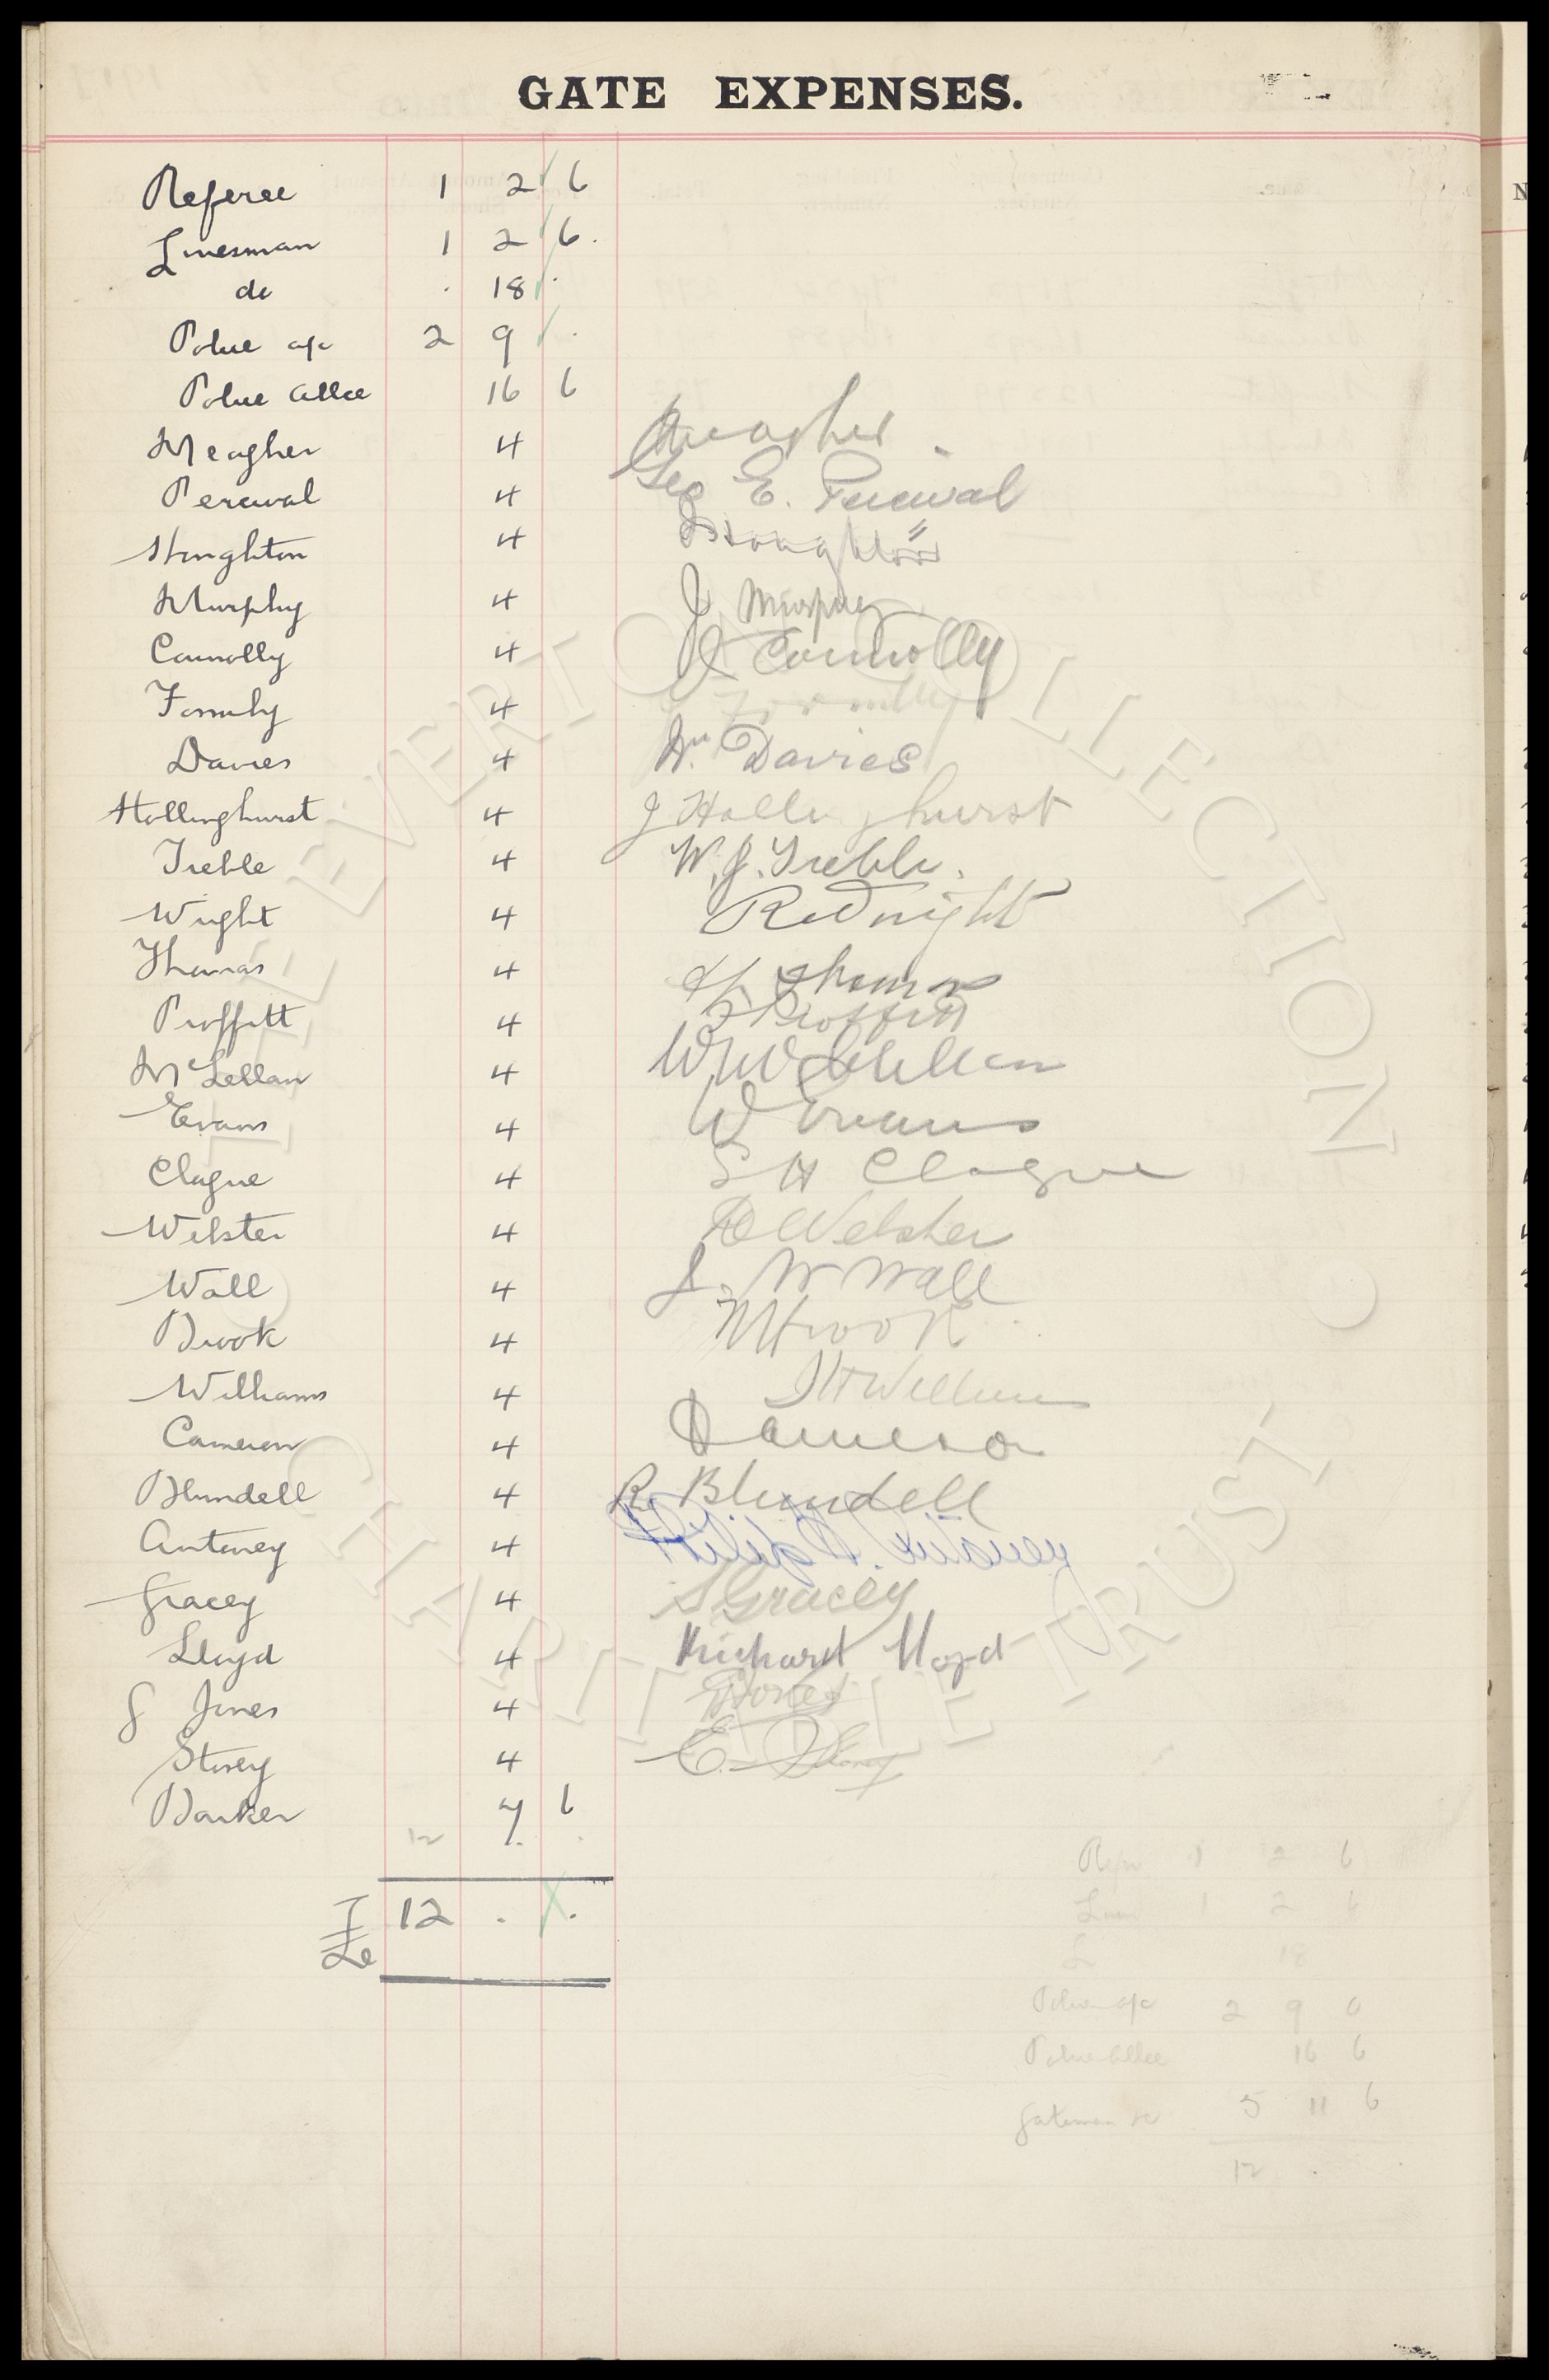 GATE EXPENSES.
Referee 1 2 6
Linesman 1 2 6.
do . 18 .
Police a/c 2 9 .
Police Allce 16 6
Meagher 4 Meagher
Percival 4 Geo E. Percival
Stoughton 4 Stoughton
Murphy 4 J Murphy
Connolly 4 Connolly
Formby 4 Formby
Davies 4 Wm Davies
Hollinghurst 4 J Hollinghurst
Treble 4 W. J. Treble.
Wright 4 R Wright
Thomas 4 Thomas
Proffitt 4 Proffitt
McLellan 4 W McLellan
Evans 4 W Evans
Clague 4 S H Clague
Webster 4 Webster
Wall 4 J. W Wall
Brook 4 Brook
Williams 4 Williams
Cameron 4 Cameron
Blundell 4 R Blundell
Antoney 4 Philip Antoney
Gracey 4 S Gracey
Lloyd 4 Richard Lloyd
G Jones 4 G Jones
Storey 4 E. Storey
Barker 7 6
12 . .
12 . .
Refe 1 2 6
Lines 1 2 6
L 18
Police a/c 2 9 0
Police Allce 16 6
Gateman &c 5 11 6
12 . .
THE EVERTON COLLECTION CHARITABLE TRUST